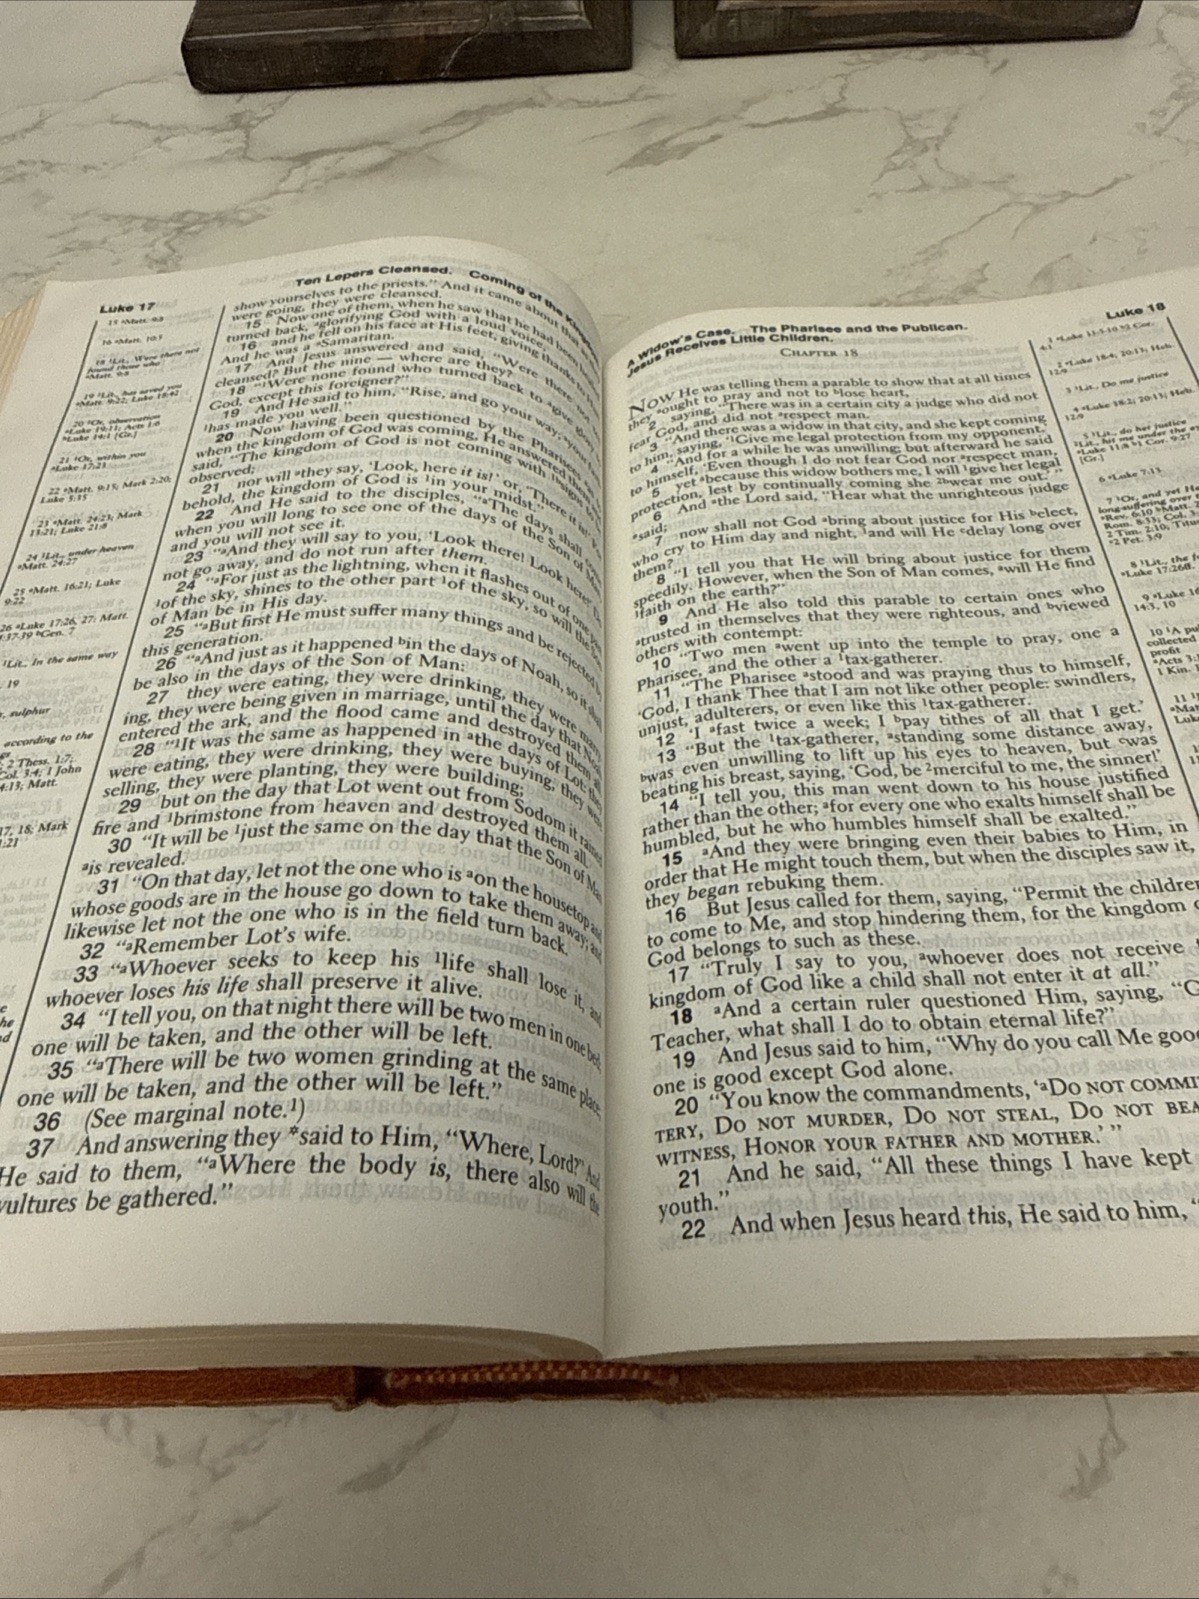 Luke 17
Ten Lepers Cleansed. Coming of the
15 ªMatt. 9:8
16 ªMatt. 10:5
18 ¹Lit., Were there not
found those who
ªMatt. 9:8
19 ¹Lit., has saved you
ªMatt. 9:22; Luke 18:42
20 ¹Or, observation
ªLuke 19:11; Acts 1:6
ᵇLuke 14:1 [Gr.]
21 ¹Or, within you
ªLuke 17:23
22 ªMatt. 9:15; Mark 2:20;
Luke 5:35
23 ªMatt. 24:23; Mark
13:21; Luke 21:8
24 ¹Lit., under heaven
ªMatt. 24:27
25 ªMatt. 16:21; Luke
9:22
26 ªLuke 17:26, 27: Matt.
:37-39 ᵇGen. 7
¹Lit., In the same way
. 19
, sulphur
according to the
2 Thess. 1:7;
Col. 3:4; 1 John
4:13; Matt.
17, 18; Mark
:21
show yourselves to the priests." And it came about that
were going, they were cleansed.
15 Now one of them, when he saw that he had been
turned back, ªglorifying God with a loud voice,
16 and he fell on his face at His feet, giving thanks to
And he was a ªSamaritan.
17 And Jesus answered and said, "Were there not
cleansed? But the nine — where are they?
18 "¹Were none found who turned back to ªgive
God, except this foreigner?"
19 And He said to him, "Rise, and go your way; ªyour
¹has made you well."
20 Now having been questioned by the Pharisees
when the kingdom of God was coming, He answered
said, "The kingdom of God is not coming with ¹signs
observed;
21 nor will ªthey say, 'Look, here it is!' or, 'There it is!'
behold, the kingdom of God is ¹in your midst."
22 And He said to the disciples, "ªThe days shall
when you will long to see one of the days of the Son of
and you will not see it.
23 "ªAnd they will say to you, 'Look there! Look here!'
not go away, and do not run after them.
24 "ªFor just as the lightning, when it flashes out of one
¹of the sky, shines to the other part ¹of the sky, so will the
of Man be in His day.
25 "ªBut first He must suffer many things and be rejected by
this generation.
26 "ªAnd just as it happened ᵇin the days of Noah, so it shall
be also in the days of the Son of Man:
27 they were eating, they were drinking, they were
ing, they were being given in marriage, until the day that Noah
entered the ark, and the flood came and destroyed them
28 "¹It was the same as happened in ªthe days of Lot: they
were eating, they were drinking, they were buying, they were
selling, they were planting, they were building;
29 but on the day that Lot went out from Sodom it rained
fire and ¹brimstone from heaven and destroyed them all.
30 "It will be ¹just the same on the day that the Son of Man
ªis revealed.
31 "On that day, let not the one who is ªon the housetop and
whose goods are in the house go down to take them away; and
likewise let not the one who is in the field turn back.
32 "ªRemember Lot's wife.
33 "ªWhoever seeks to keep his ¹life shall lose it, and
whoever loses his life shall preserve it alive.
34 "I tell you, on that night there will be two men in one bed;
one will be taken, and the other will be left.
35 "ªThere will be two women grinding at the same place;
one will be taken, and the other will be left."
36 (See marginal note.¹)
37 And answering they *said to Him, "Where, Lord?" And
He said to them, "ªWhere the body is, there also will the
vultures be gathered."
A Widow's Case. The Pharisee and the Publican.
Jesus Receives Little Children.
Luke 18
CHAPTER 18
NOW He was telling them a parable to show that at all times
they ªought to pray and not to ᵇlose heart,
2 saying, "There was in a certain city a judge who did not
fear God, and did not ªrespect man.
3 "And there was a widow in that city, and she kept coming
to him, saying, '¹Give me legal protection from my opponent.'
4 "And for a while he was unwilling; but afterward he said
to himself, 'Even though I do not fear God nor ªrespect man,
5 yet ªbecause this widow bothers me, I will ¹give her legal
protection, lest by continually coming she ²ᵇwear me out.'"
6 And ªthe Lord said, "Hear what the unrighteous judge
*said;
7 now shall not God ªbring about justice for His ᵇelect,
who cry to Him day and night, ¹and will He ᶜdelay long over
them?
8 "I tell you that He will bring about justice for them
speedily. However, when the Son of Man comes, ªwill He find
¹faith on the earth?"
9 And He also told this parable to certain ones who
ªtrusted in themselves that they were righteous, and ᵇviewed
others with contempt:
10 "Two men ªwent up into the temple to pray, one a
Pharisee, and the other a ¹tax-gatherer.
11 "The Pharisee ªstood and was praying thus to himself,
'God, I thank Thee that I am not like other people: swindlers,
unjust, adulterers, or even like this ¹tax-gatherer.
12 'I ªfast twice a week; I ᵇpay tithes of all that I get.'
13 "But the ¹tax-gatherer, ªstanding some distance away,
ᵇwas even unwilling to lift up his eyes to heaven, but ᶜwas
beating his breast, saying, 'God, be ²merciful to me, the sinner!'
14 "I tell you, this man went down to his house justified
rather than the other; ªfor every one who exalts himself shall be
humbled, but he who humbles himself shall be exalted."
15 ªAnd they were bringing even their babies to Him, in
order that He might touch them, but when the disciples saw it,
they began rebuking them.
16 But Jesus called for them, saying, "Permit the children
to come to Me, and stop hindering them, for the kingdom
God belongs to such as these.
17 "Truly I say to you, ªwhoever does not receive
kingdom of God like a child shall not enter it at all."
18 ªAnd a certain ruler questioned Him, saying, "G
Teacher, what shall I do to obtain eternal life?"
19 And Jesus said to him, "Why do you call Me goo
one is good except God alone.
20 "You know the commandments, 'ªDO NOT COMMI
TERY, DO NOT MURDER, DO NOT STEAL, DO NOT BEA
WITNESS, HONOR YOUR FATHER AND MOTHER.' "
21 And he said, "All these things I have kept
youth."
22 And when Jesus heard this, He said to him, "
2 ªLuke 18:4; 20:13; Heb.
12:9
3 ¹Lit., Do me justice
4 ªLuke 18:2; 20:13; Heb.
12:9
5 ¹Lit., do her justice
²Lit., hit me under the
ªLuke 11:8 ᵇ1 Cor. 9:27
[Gr.]
6 ªLuke 7:13
7 ¹Or, and yet He
long-suffering over
ªRev. 6:10 ᵇMatt. 2
Rom. 8:33; Col. 3
2 Tim. 2:10; Titu
ᶜ2 Pet. 3:9
8 ¹Lit., the f
ªLuke 17:26ff.
9 ªLuke 16
14:3, 10
10 ¹A pu
collected
profit
ªActs 3:1
1 Kin.